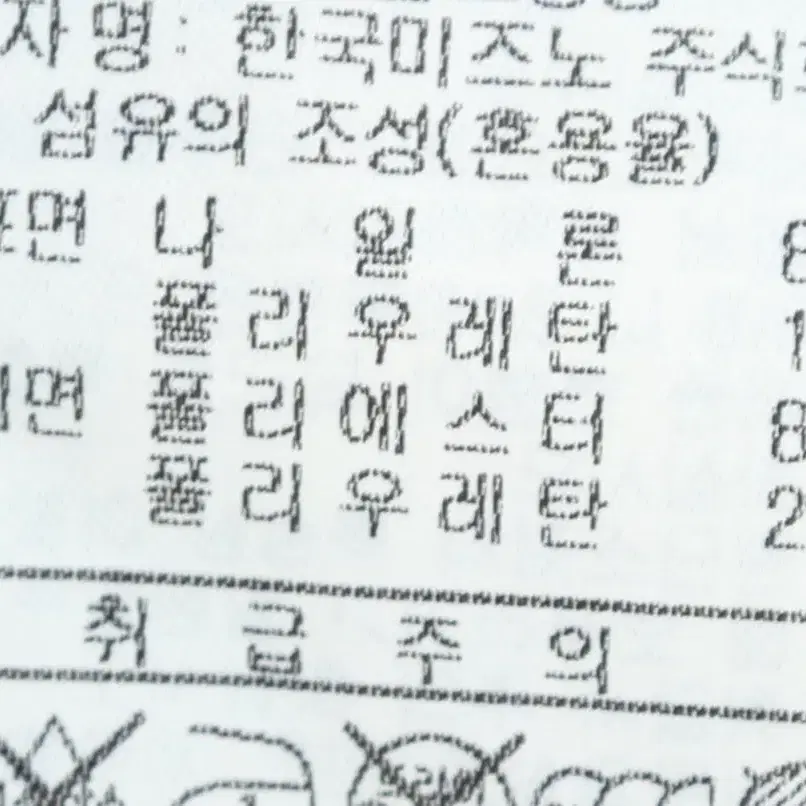 자명: 한국미즈노 주식
섬유의 조성(혼용율)
면 나 일 론 8
폴 리 우 레 탄 1
면 폴 리 에 스 터 8
폴 리 우 레 탄 2
취 급 주 의